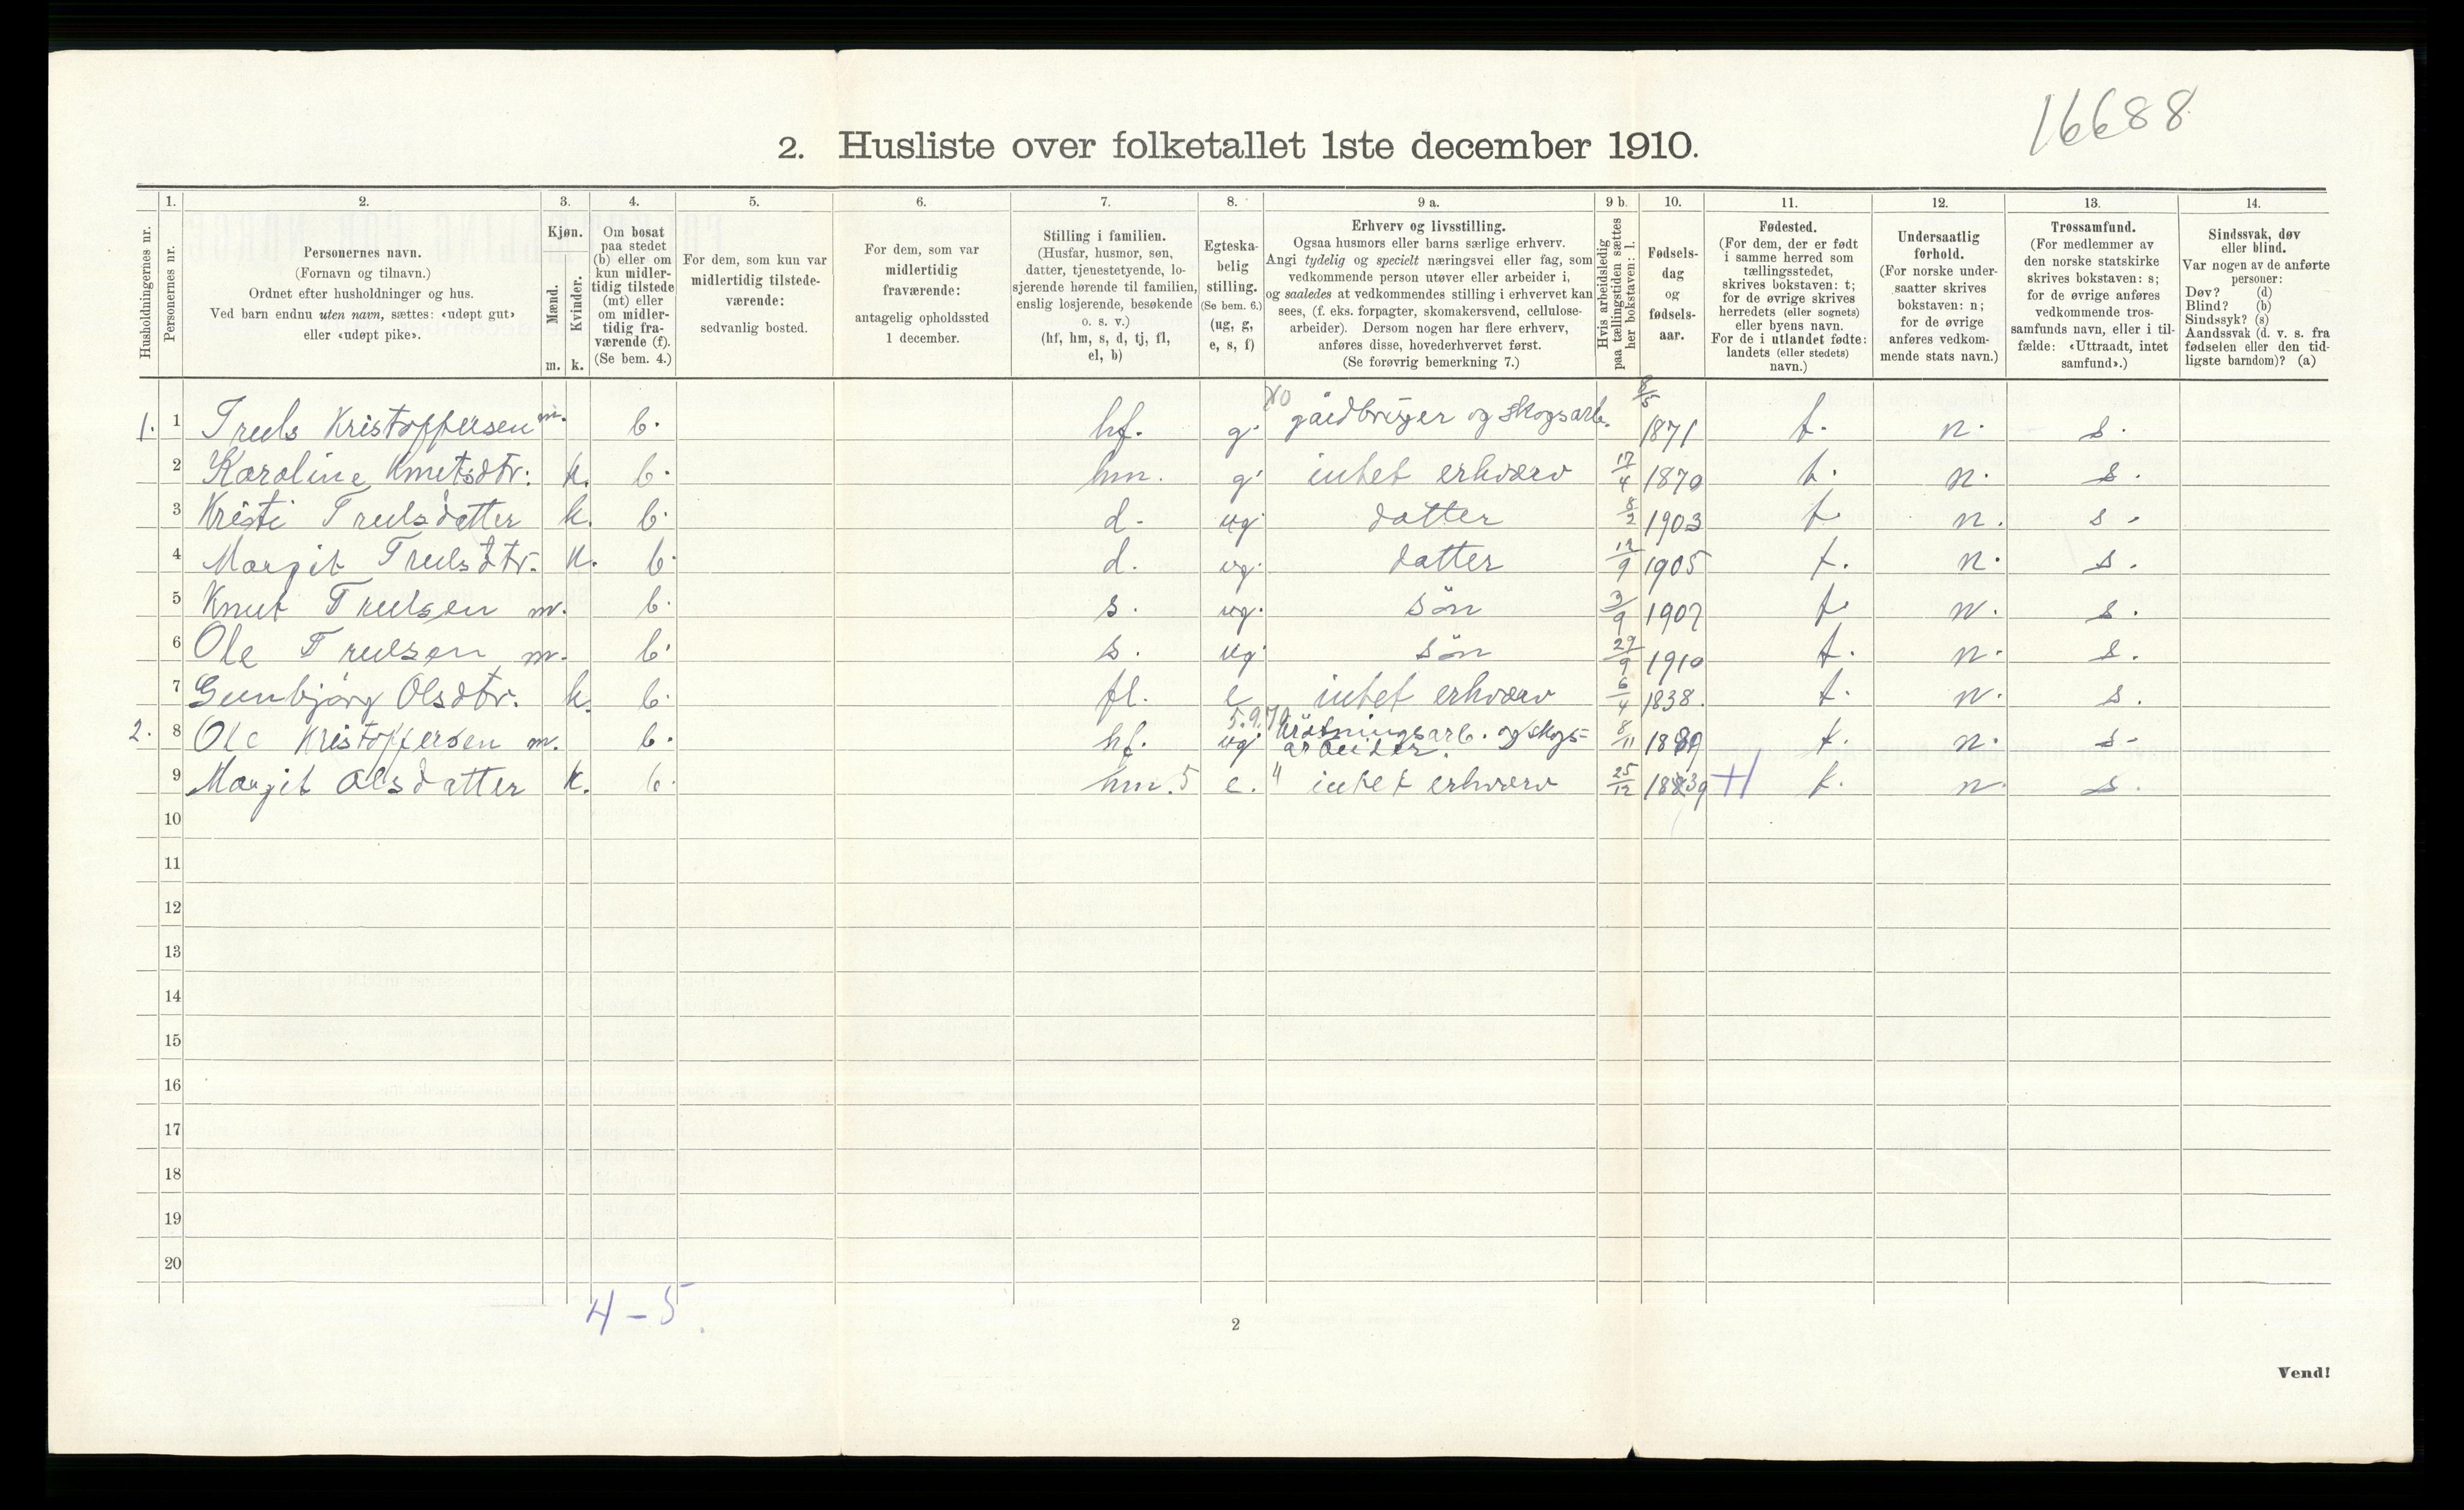 16688
2. Husliste over folketallet 1ste december 1910.
Husholdningernes nr.
1.
Personernes nr.
2.
Personernes navn.
(Fornavn og tilnavn.)
Ordnet efter husholdninger og hus.
Ved barn endnu uten navn, sættes: «udøpt gut»
eller «udøpt pike».
3.
Kjøn.
Mænd.
Kvinder.
m. k.
4.
Om bosat
paa stedet
(b) eller om
kun midler-
tidig tilstede
(mt) eller
om midler-
tidig fra-
værende (f).
(Se bem. 4.)
5.
For dem, som kun var
midlertidig tilstede-
værende:
sedvanlig bosted.
6.
For dem, som var
midlertidig
fraværende:
antagelig opholdssted
1 december.
7.
Stilling i familien.
(Husfar, husmor, søn,
datter, tjenestetyende, lo-
sjerende hørende til familien,
enslig losjerende, besøkende
o. s. v.)
(hf, hm, s, d, tj, fl,
el, b)
8.
Egteska-
belig
stilling.
(Se bem. 6.)
(ug, g,
e, s, f)
9 a.
Erhverv og livsstilling.
Ogsaa husmors eller barns særlige erhverv.
Angi tydelig og specielt næringsvei eller fag, som
vedkommende person utøver eller arbeider i,
og saaledes at vedkommendes stilling i erhvervet kan
sees, (f. eks. forpagter, skomakersvend, cellulose-
arbeider). Dersom nogen har flere erhverv,
anføres disse, hovederhvervet først.
(Se forøvrig bemerkning 7.)
9 b.
Hvis arbeidsledig
paa tællingstiden sættes
her bokstaven: l.
10.
Fødsels-
dag
og
fødsels-
aar.
11.
Fødested.
(For dem, der er født
i samme herred som
tællingsstedet,
skrives bokstaven: t;
for de øvrige skrives
herredets (eller sognets)
eller byens navn.
For de i utlandet fødte:
landets (eller stedets)
navn.)
12.
Undersaatlig
forhold.
(For norske under-
saatter skrives
bokstaven: n;
for de øvrige
anføres vedkom-
mende stats navn.)
13.
Trossamfund.
(For medlemmer av
den norske statskirke
skrives bokstaven: s;
for de øvrige anføres
vedkommende tros-
samfunds navn, eller i til-
fælde: «Uttraadt, intet
samfund».)
14.
Sindssvak, døv
eller blind.
Var nogen av de anførte
personer:
Døv? (d)
Blind? (b)
Sindssyk? (s)
Aandssvak (d. v. s. fra
fødselen eller den tid-
ligste barndom)? (a)
1. 1 Truls Kristoffersen m. b. hf. g. gårdbruger og skogsarb. 8/5 1871 t. n. s.
2 Karoline Knutsdtr. k. b. hm. g. intet erhverv 17/4 1870 t. n. s.
3 Kristi Trulsdatter k. b. d. ug. datter 8/2 1903 t. n. s.
4 Margit Trulsdtr. k. b. d. ug. datter 12/9 1905 t. n. s.
5 Knut Trulsen m. b. s. ug. sön 3/9 1907 t. n. s.
6 Ole Trulsen m. b. s. ug. sön 29/9 1910 t. n. s.
7 Gunbjörg Olsdtr. k. b. fl. e intet erhverv 6/4 1838. t. n. s.
2. 8 Ole Kristoffersen m. b. hf. ug. fløtningsarb. og skogs-
arbeider. 8/11 1889 t. n. s.
9 Margit Olsdatter k. b. hm. 5 e. " intet erhverv 25/12 1839 t. n. s.
10
11
12
13
14
15
16
17
18
19
20
4 – 5.
2
Vend!